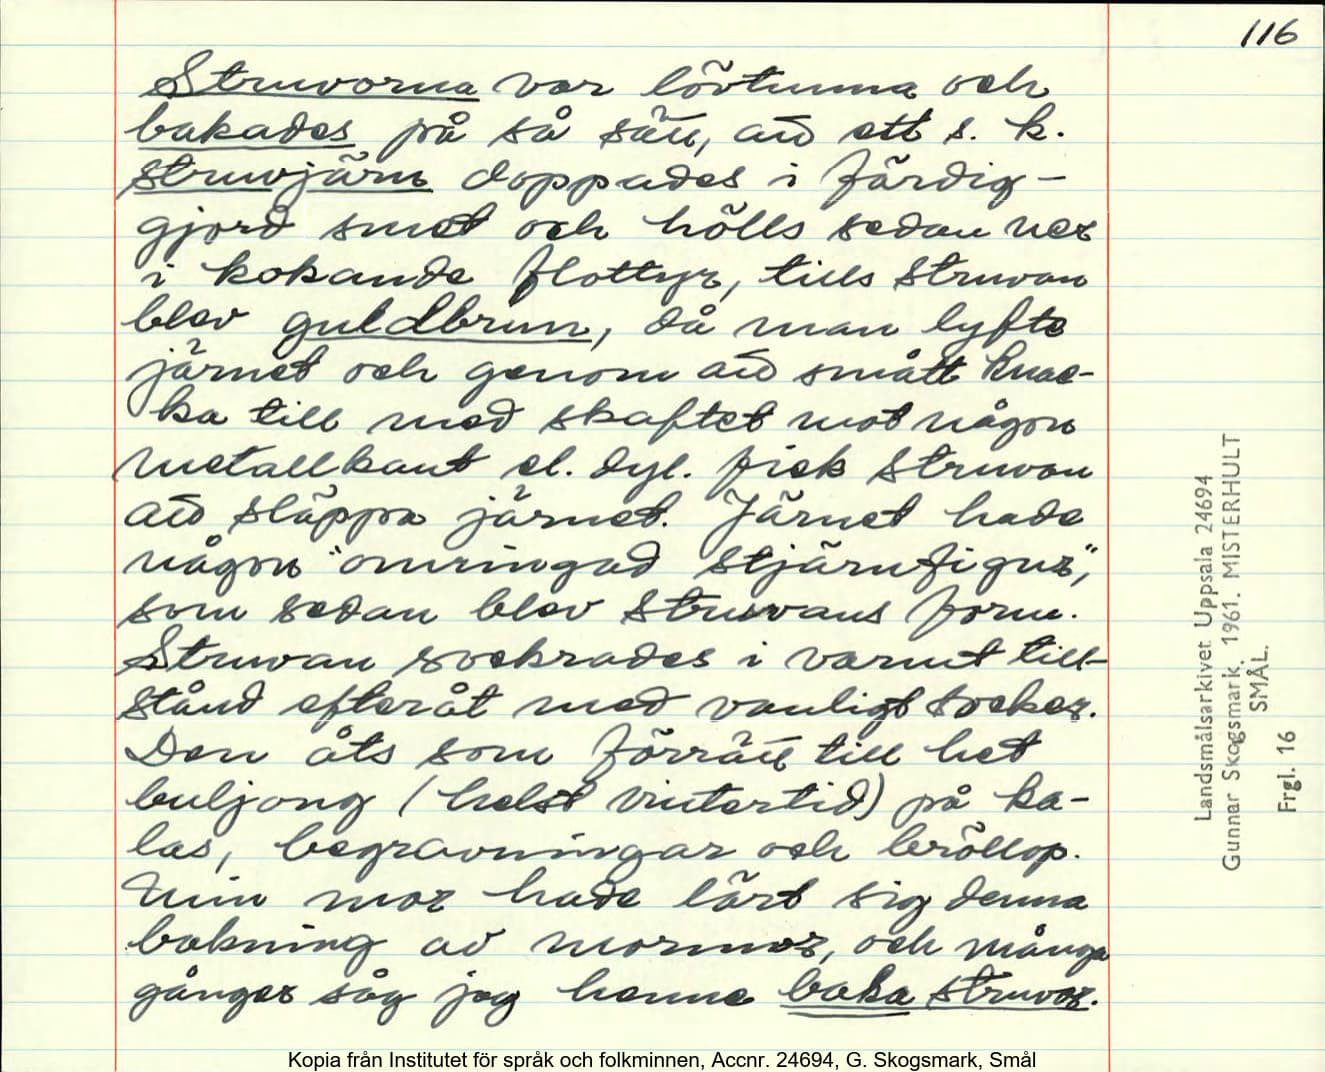 116
Struvorna var lövtunna och
bakades på så sätt, att ett s. k.
struvjärn doppades i färdig-
gjord smet och hölls sedan ner
i kokande flottyr, tills struvan
blev guldbrun, då man lyfte
järnet och genom att smått knac-
ka till med skaftet mot någon
metallkant el. dyl. fick struvan
att släppa järnet. Järnet hade
någon "omringad stjärnfigur",
som sedan blev struvans form.
Struvan sockrades i varmt till-
stånd efteråt med vanligt socker.
Den åts som förrätt till het
buljong (helst vintertid) på ka-
las, begravningar och bröllop.
Min mor hade lärt sig denna
bakning av mormor, och många
gånger såg jag henne baka struvor.
Landsmålsarkivet Uppsala 24694
Gunnar Skogsmark. 1961. MISTERHULT
SMÅL.
Frgl. 16
Kopia från Institutet för språk och folkminnen, Accnr. 24694, G. Skogsmark, Smål